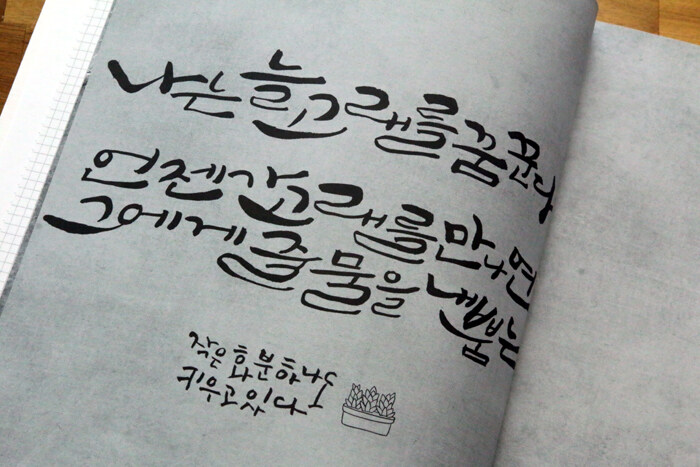 나는 늘 고래를 꿈꾼다
언젠가 고래를 만나면
그에게 줄 물을 내뿜는
작은 화분 하나도
키우고 있다